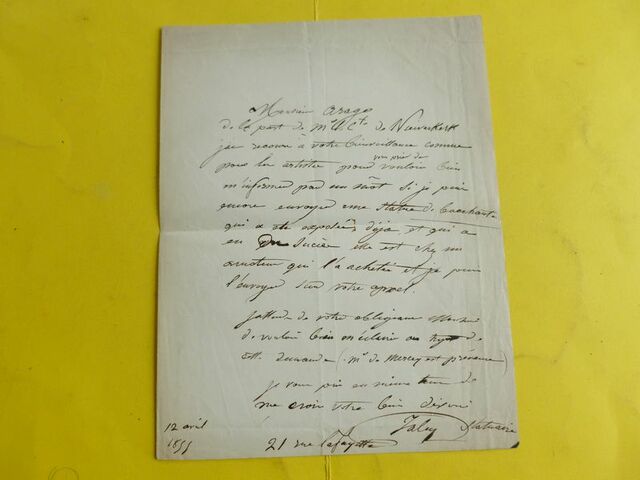 Monsieur Arago
de la part de Mr le Cte de Nieuwerkerke
j'ai recours à votre bienveillance comme
pour les artistes pour vouloir bien
vous prier de
m'informer par un mot si je puis
encore envoyer une statue de Bacchante
qui a été exposée déja et qui a
eu du succès elle est chez un
amateur qui l'a achetée et je puis
l'envoyer sur votre appel.
j'attends de votre obligeance
de vouloir bien m'éclairer au sujet de
cette demande (Mr de Mercey est prévenu)
je vous prie en même tems de
me croire votre bien dévoué
Jaley Statuaire
12 avril
1855
21 rue Lafayette